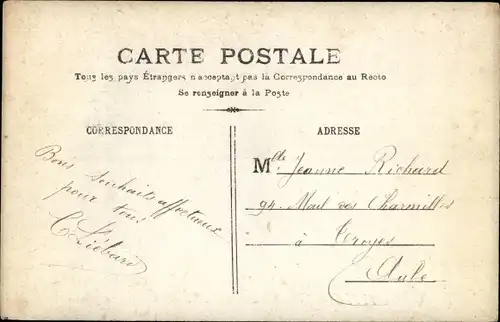 CARTE POSTALE
Tous les pays Étrangers n'acceptant pas la Correspondance au Recto
Se renseigner à la Poste
CORRESPONDANCE
Bons souhaits affectueux
pour tous
C Liébard
ADRESSE
Mlle Jeanne Richard
94. Mail des Charmilles
à Troyes
Aube